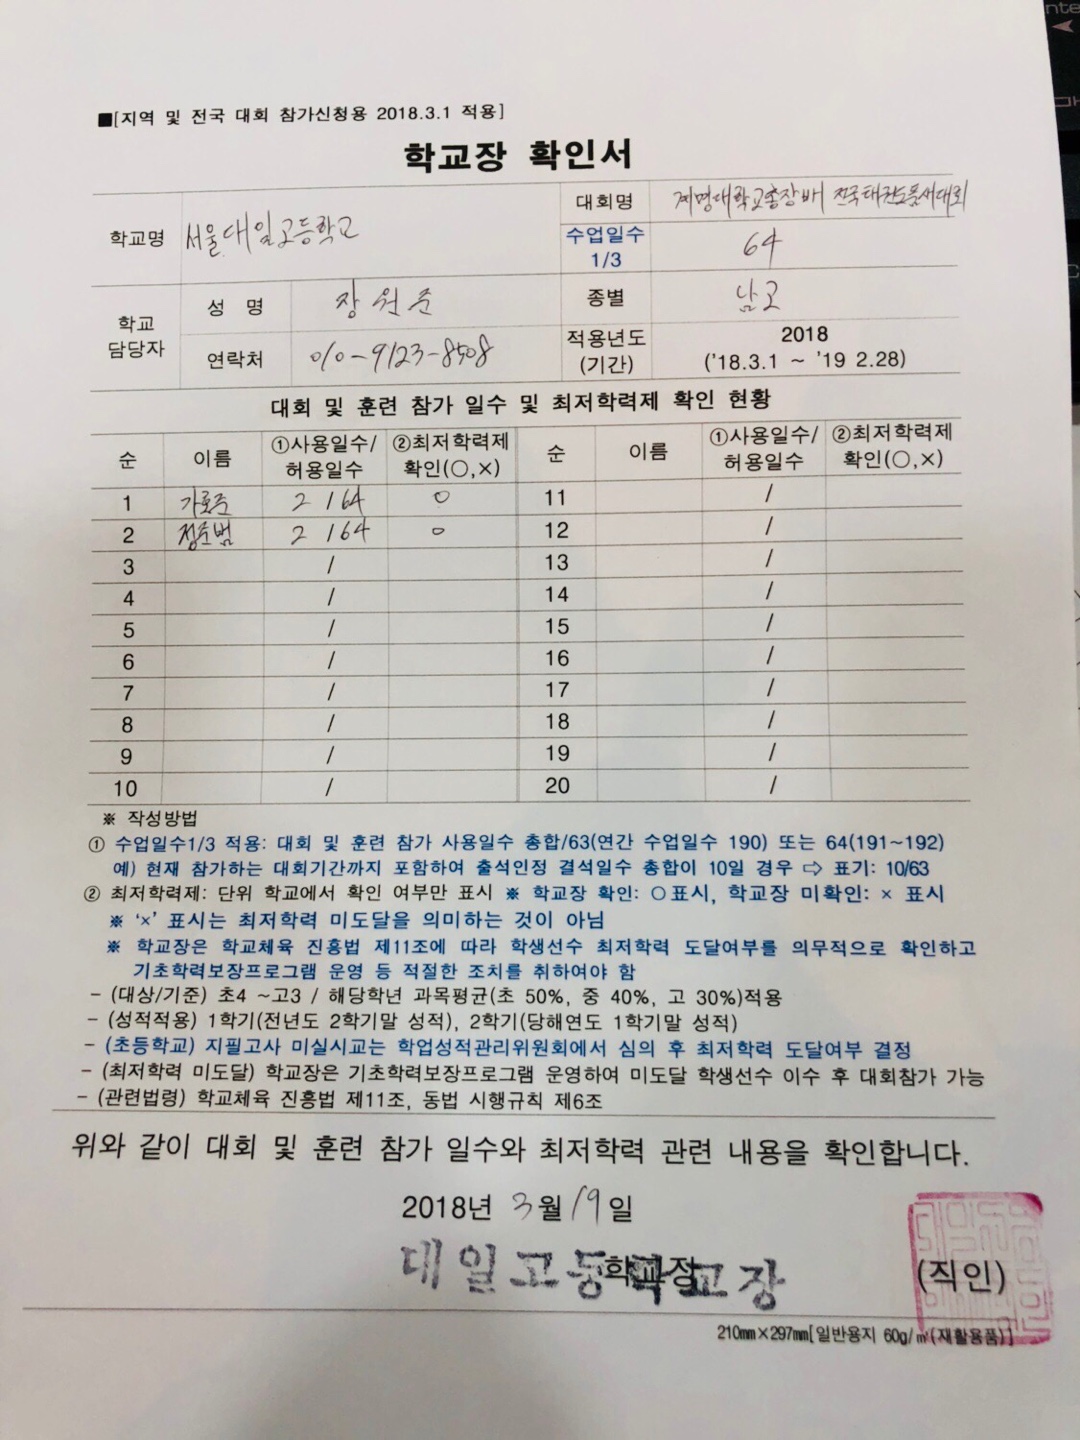 ■[지역 및 전국 대회 참가신청용 2018.3.1 적용]
학교장 확인서
학교명 서울대일고등학교
대회명 계명대학교총장배 전국태권도품새대회
수업일수 1/3 64
학교 담당자
성 명 장원준
종별 남고
연락처 010-9123-8508
적용년도 (기간) 2018 ('18.3.1 ~ '19 2.28)
대회 및 훈련 참가 일수 및 최저학력제 확인 현황
순 이름 ①사용일수/허용일수 ②최저학력제 확인(○,×) 순 이름 ①사용일수/허용일수 ②최저학력제 확인(○,×)
1 2 / 64 ○ 11 /
2 정준범 2 / 64 ○ 12 /
3 / 13 /
4 / 14 /
5 / 15 /
6 / 16 /
7 / 17 /
8 / 18 /
9 / 19 /
10 / 20 /
※ 작성방법
① 수업일수1/3 적용: 대회 및 훈련 참가 사용일수 총합/63(연간 수업일수 190) 또는 64(191~192)
예) 현재 참가하는 대회기간까지 포함하여 출석인정 결석일수 총합이 10일 경우 ⇨ 표기: 10/63
② 최저학력제: 단위 학교에서 확인 여부만 표시 ※ 학교장 확인: ○표시, 학교장 미확인: × 표시
※ ‘×’ 표시는 최저학력 미도달을 의미하는 것이 아님
※ 학교장은 학교체육 진흥법 제11조에 따라 학생선수 최저학력 도달여부를 의무적으로 확인하고
기초학력보장프로그램 운영 등 적절한 조치를 취하여야 함
- (대상/기준) 초4 ~고3 / 해당학년 과목평균(초 50%, 중 40%, 고 30%)적용
- (성적적용) 1학기(전년도 2학기말 성적), 2학기(당해연도 1학기말 성적)
- (초등학교) 지필고사 미실시교는 학업성적관리위원회에서 심의 후 최저학력 도달여부 결정
- (최저학력 미도달) 학교장은 기초학력보장프로그램 운영하여 미도달 학생선수 이수 후 대회참가 가능
- (관련법령) 학교체육 진흥법 제11조, 동법 시행규칙 제6조
위와 같이 대회 및 훈련 참가 일수와 최저학력 관련 내용을 확인합니다.
2018년 3월 19일
대일고등학교장 학교장 (직인)
210㎜×297㎜[일반용지 60g/㎡(재활용품)]